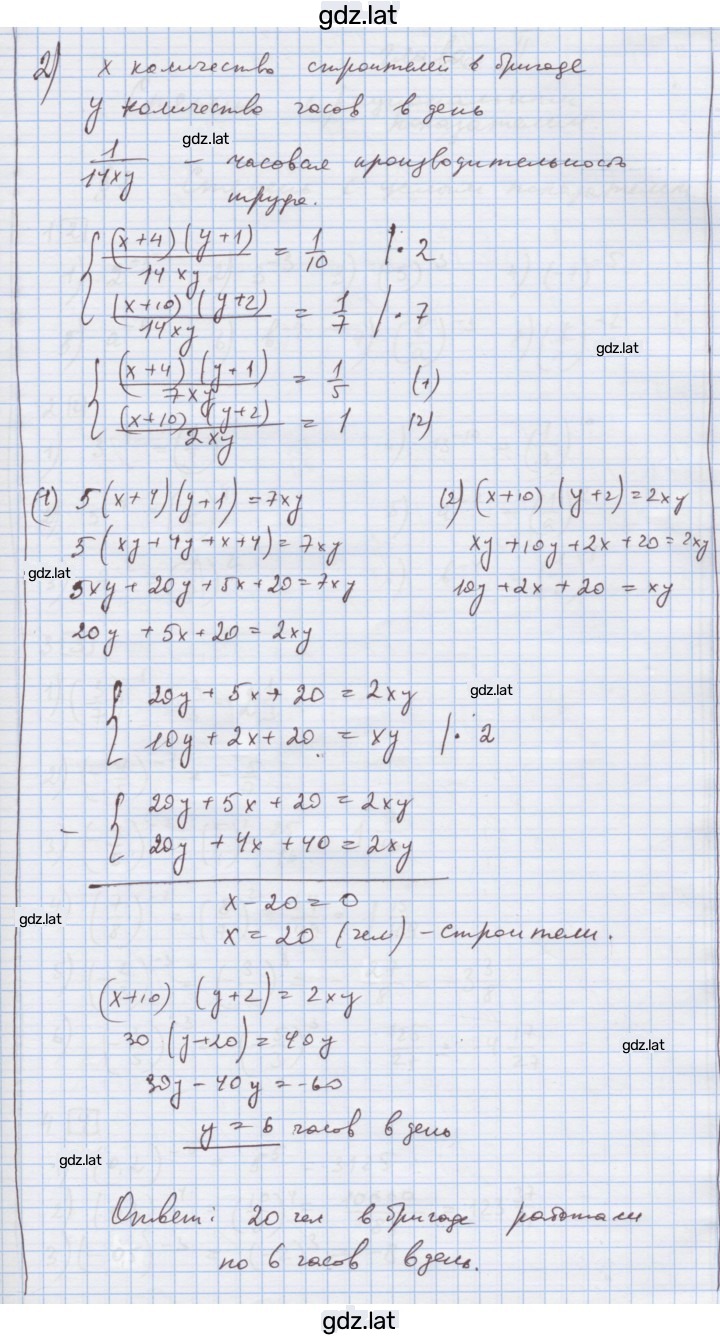 gdz.lat
2) x количество строителей в бригаде
y количество часов в день
gdz.lat
1/14xy – часовая производительность
труда.
{ (x+4)(y+1)/14xy = 1/10 |·2
(x+10)(y+2)/14xy = 1/7 |·7
gdz.lat
{ (x+4)(y+1)/7xy = 1/5 (1)
(x+10)(y+2)/2xy = 1 (2)
(1) 5(x+4)(y+1)=7xy (2) (x+10)(y+2)=2xy
5(xy+4y+x+4)=7xy xy+10y+2x+20=2xy
gdz.lat
5xy+20y+5x+20=7xy 10y+2x+20=xy
20y+5x+20=2xy
gdz.lat
{ 20y+5x+20=2xy
10y+2x+20=xy |·2
– { 20y+5x+20=2xy
20y+4x+40=2xy
x-20=0
gdz.lat
x=20 (чел) – строители.
(x+10)(y+2)=2xy
30(y+20)=40y
gdz.lat
30y-40y=-60
y=6 часов в день
gdz.lat
Ответ: 20 чел в бригаде работали
по 6 часов в день.
gdz.lat